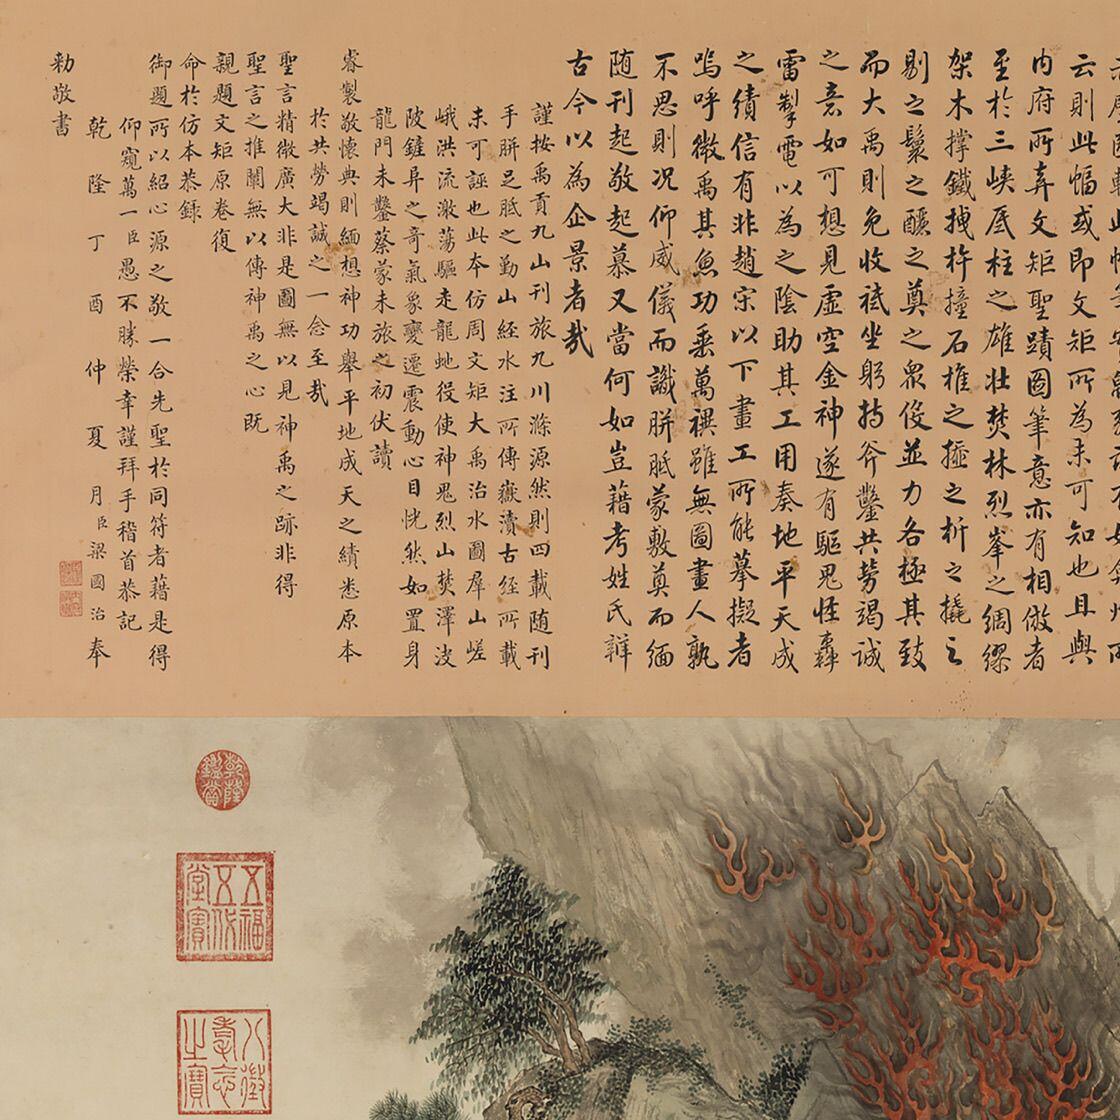 云則此幅或即文矩所為未可知也且與
内府所弆文矩聖蹟圖筆意亦有相倣者
至於三峽厎柱之雄壯焚林烈峯之綢繆
架木撑鐵拽杵撞石椎之之析之撬之
剔之之釃之奠之眾俊並力各極其致
而大禹則免收裓坐躬持斧鑿共勞竭誠
之意如可想見虚空金神遂有驅鬼怪轟
雷掣電以為之陰助其工用奏地平天成
之績信有非趙宋以下畫工所能摹擬者
嗚呼微禹其魚功垂萬禩雖無圖畫人孰
不思則况仰威儀而識胼胝蒙敷奠而緬
随刊起敬起慕又當何如豈藉考姓氏辯
古今以為企景者哉
謹按禹貢九山刊旅九川滌源然則四載随刊
手胼足胝之勤山經水注所傳嶽瀆古經所載
未可誣也此本仿周文矩大禹治水圖羣山嵯
峨洪流激蕩驅走龍虵役使神鬼烈山焚澤浚
陂鏟阜之奇氣象變遷震動心目恍然如置身
龍門未鑿蔡蒙未旅之初伏讀
睿製敬懷典則緬想神功舉平地成天之績悉原本
於共勞竭誠之一念至哉
聖言精微廣大非是圖無以見神禹之跡非得
聖言之推闡無以傳神禹之心既
親題文矩原卷復
命於仿本恭錄
御題所以紹心源之敬一合先聖於同符者藉是得
仰窺萬一臣愚不勝榮幸謹拜手稽首恭記
乾隆丁酉仲夏月臣梁國治奉
勅敬書
乾隆鑑賞
五福五代堂寶
八徵耄念之寶